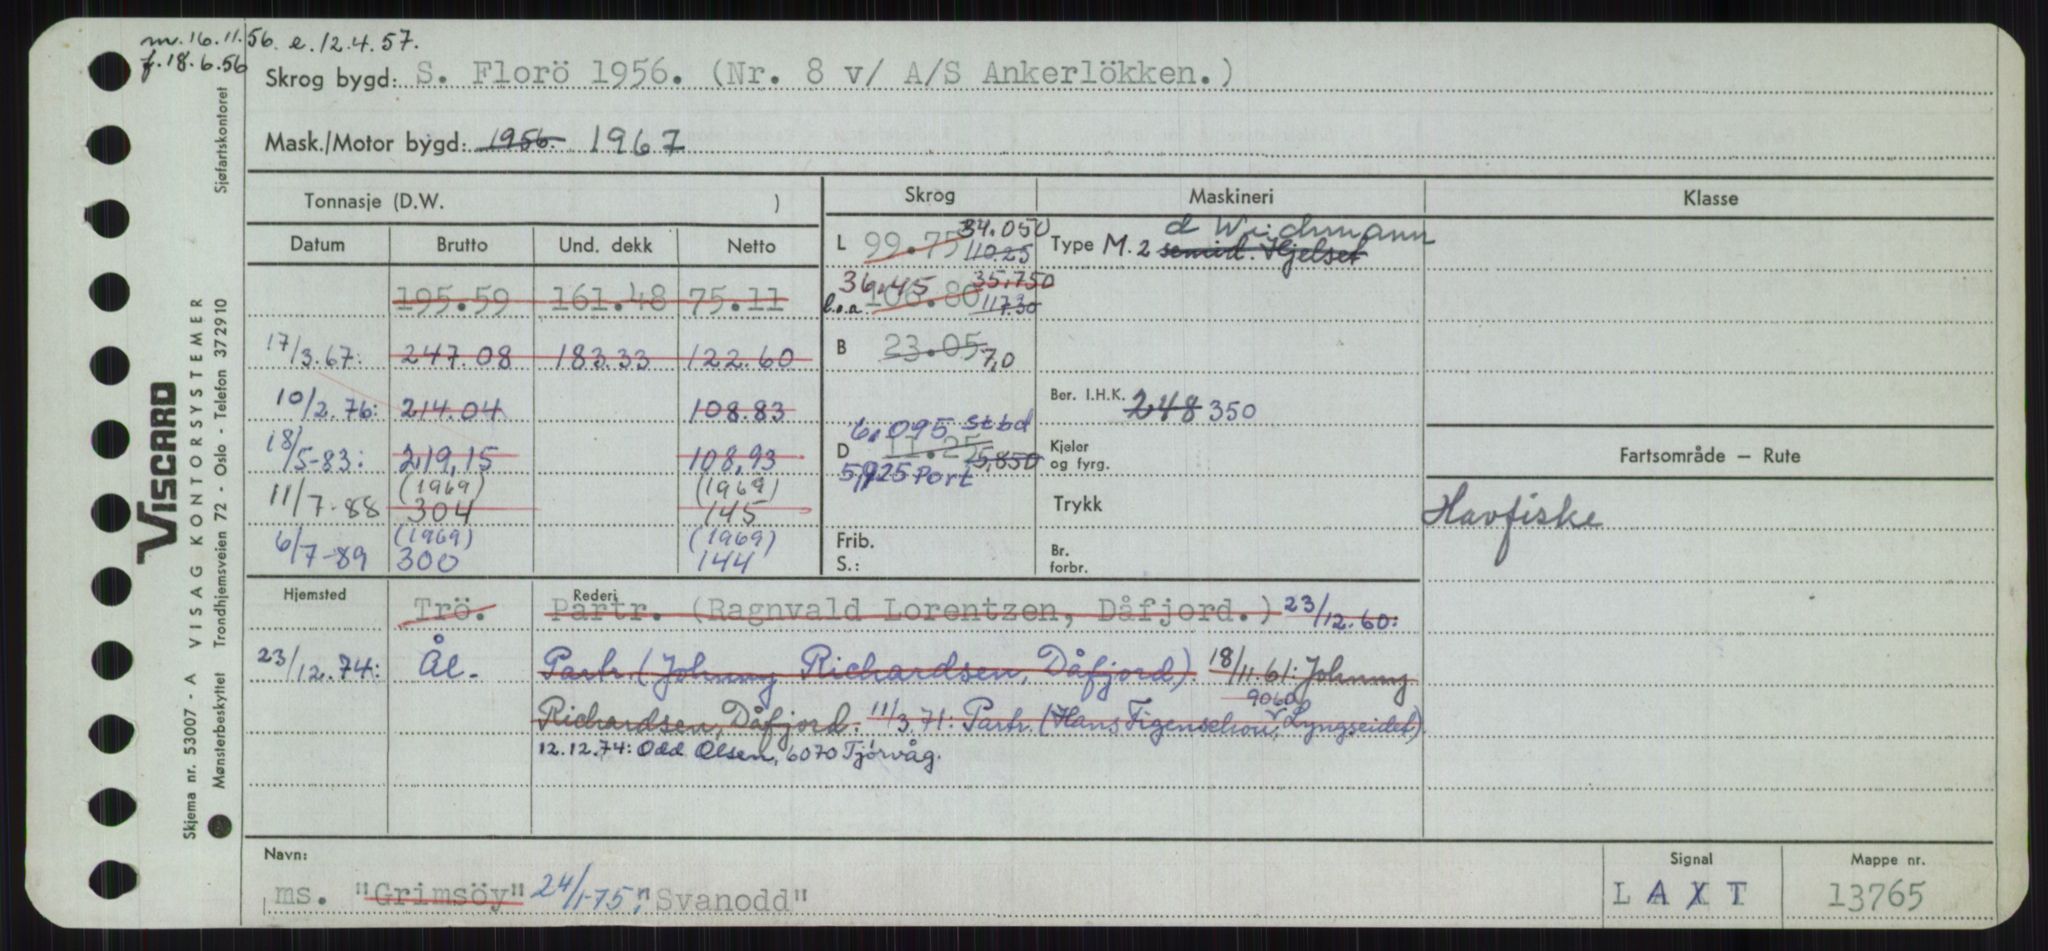 m. 16.11.56. e. 12.4.57.
f. 18.6.56
Skrog bygd: S. Florö 1956. (Nr. 8 v/ A/S Ankerlökken.)
Mask./Motor bygd: 1956. 1967
Tonnasje (D.W. )
Datum Brutto Und. dekk Netto
195.59 161.48 75.11
17/3.67: 247.08 183.33 122.60
10/2.76: 214.04 108.83
18/5-83: 219,15 108,93
(1969) (1969)
11/7-88 304 145
(1969) (1969)
6/7-89 300 144
Skrog
34.050
L 99.75 110.25
36.45 35.750
l.o.a. 106.80 117.30
B 23.05 7,0
6.095 Stbd
D 11.25 5,850
5,925 Port
Frib.
S.:
Maskineri
d Wichmann
Type M. 2 semid. Hjelset
Ber. I.H.K. 248 350
Kjeler
og fyrg.
Trykk
Br.
forbr.
Klasse
Fartsområde — Rute
Havfiske
Hjemsted Rederi
Trö. Partr. (Ragnvald Lorentzen, Dåfjord.) 23/12.60:
23/12.74: Ål. Partr. (Johnny Richardsen, Dåfjord). 18/11.61: Johnny
9060
Richardsen, Dåfjord. 11/3.71: Partr. (Hans Figenschou, Lyngseidet)
12.12.74: Odd Olsen, 6070 Tjörvåg.
Navn: Signal Mappe nr.
ms. "Grimsöy" 24/1-75: "Svanodd" L A X T 13765
VISCARD
VISAG KONTORSYSTEMER
Sjøfartskontoret
Skjema nr. 53007 - A
Mønsterbeskyttet Trondhjemsveien 72 - Oslo - Telefon 372910